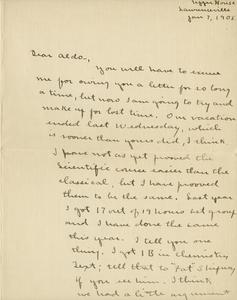 Upper House
Lawrenceville
Jan 7, 1905
Dear Aldo,
You will have to excuse
me for owing you a letter for so long
a time, but now I am going to try and
make up for lost time. Our vacation
ended last Wednesday, which
is sooner than yours did, I think.
I have not as yet proved the
Scientific course easier than the
classical, but I have prooved
them to be the same. Last year
I got 17 out of 19 hours 1st group
and I have done the same
this year. I tell you one
thing. I got 1B in chemistry
Sept; tell that to "Fat"
if you see him. I think
we had a little argument